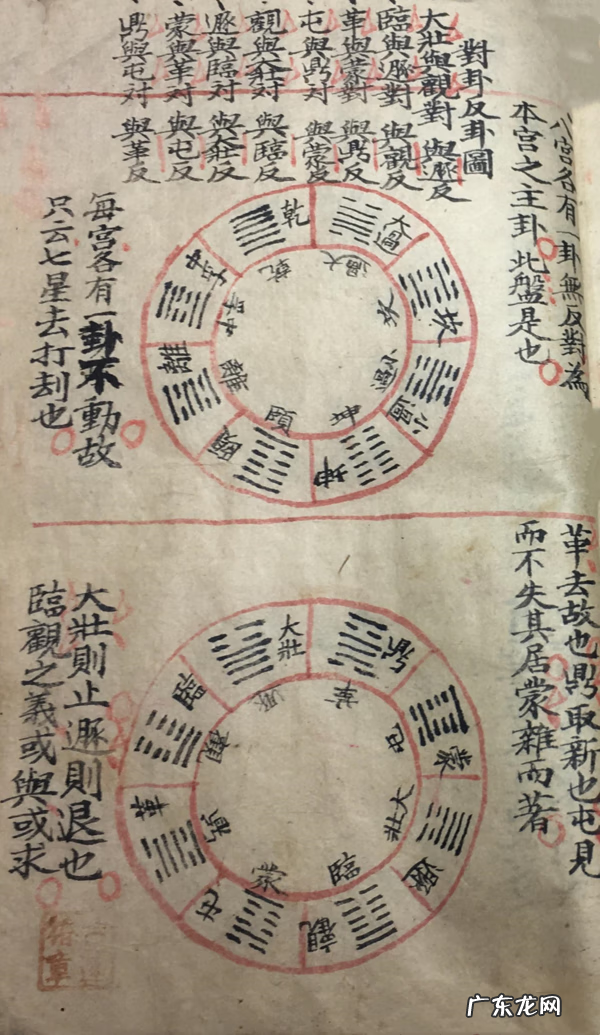 八宮各有一卦無反對為
本宮之主卦此盤是也
對卦反卦圖
大壯與觀對 與遯反
臨與遯對 與觀反
革與蒙對 與鼎反
屯與鼎对 與蒙反
觀與大壯对 與臨反
遯與臨对 與大壯反
蒙與革对 與屯反
鼎與屯对 與革反
乾
大過
坎
小過
坤
頤
離
中孚
乾
大過
坎
小過
坤
頤
離
中孚
每宮各有一卦不動故
只云七星去打刼也
革去故也鼎取新也屯見
而不失其居蒙雜而著
大壯
鼎
蒙
遯
觀
屯
革
臨
遯
革
屯
大壯
臨
蒙
鼎
觀
大壯則止遯則退也
臨觀之義或與或求
广东龙网